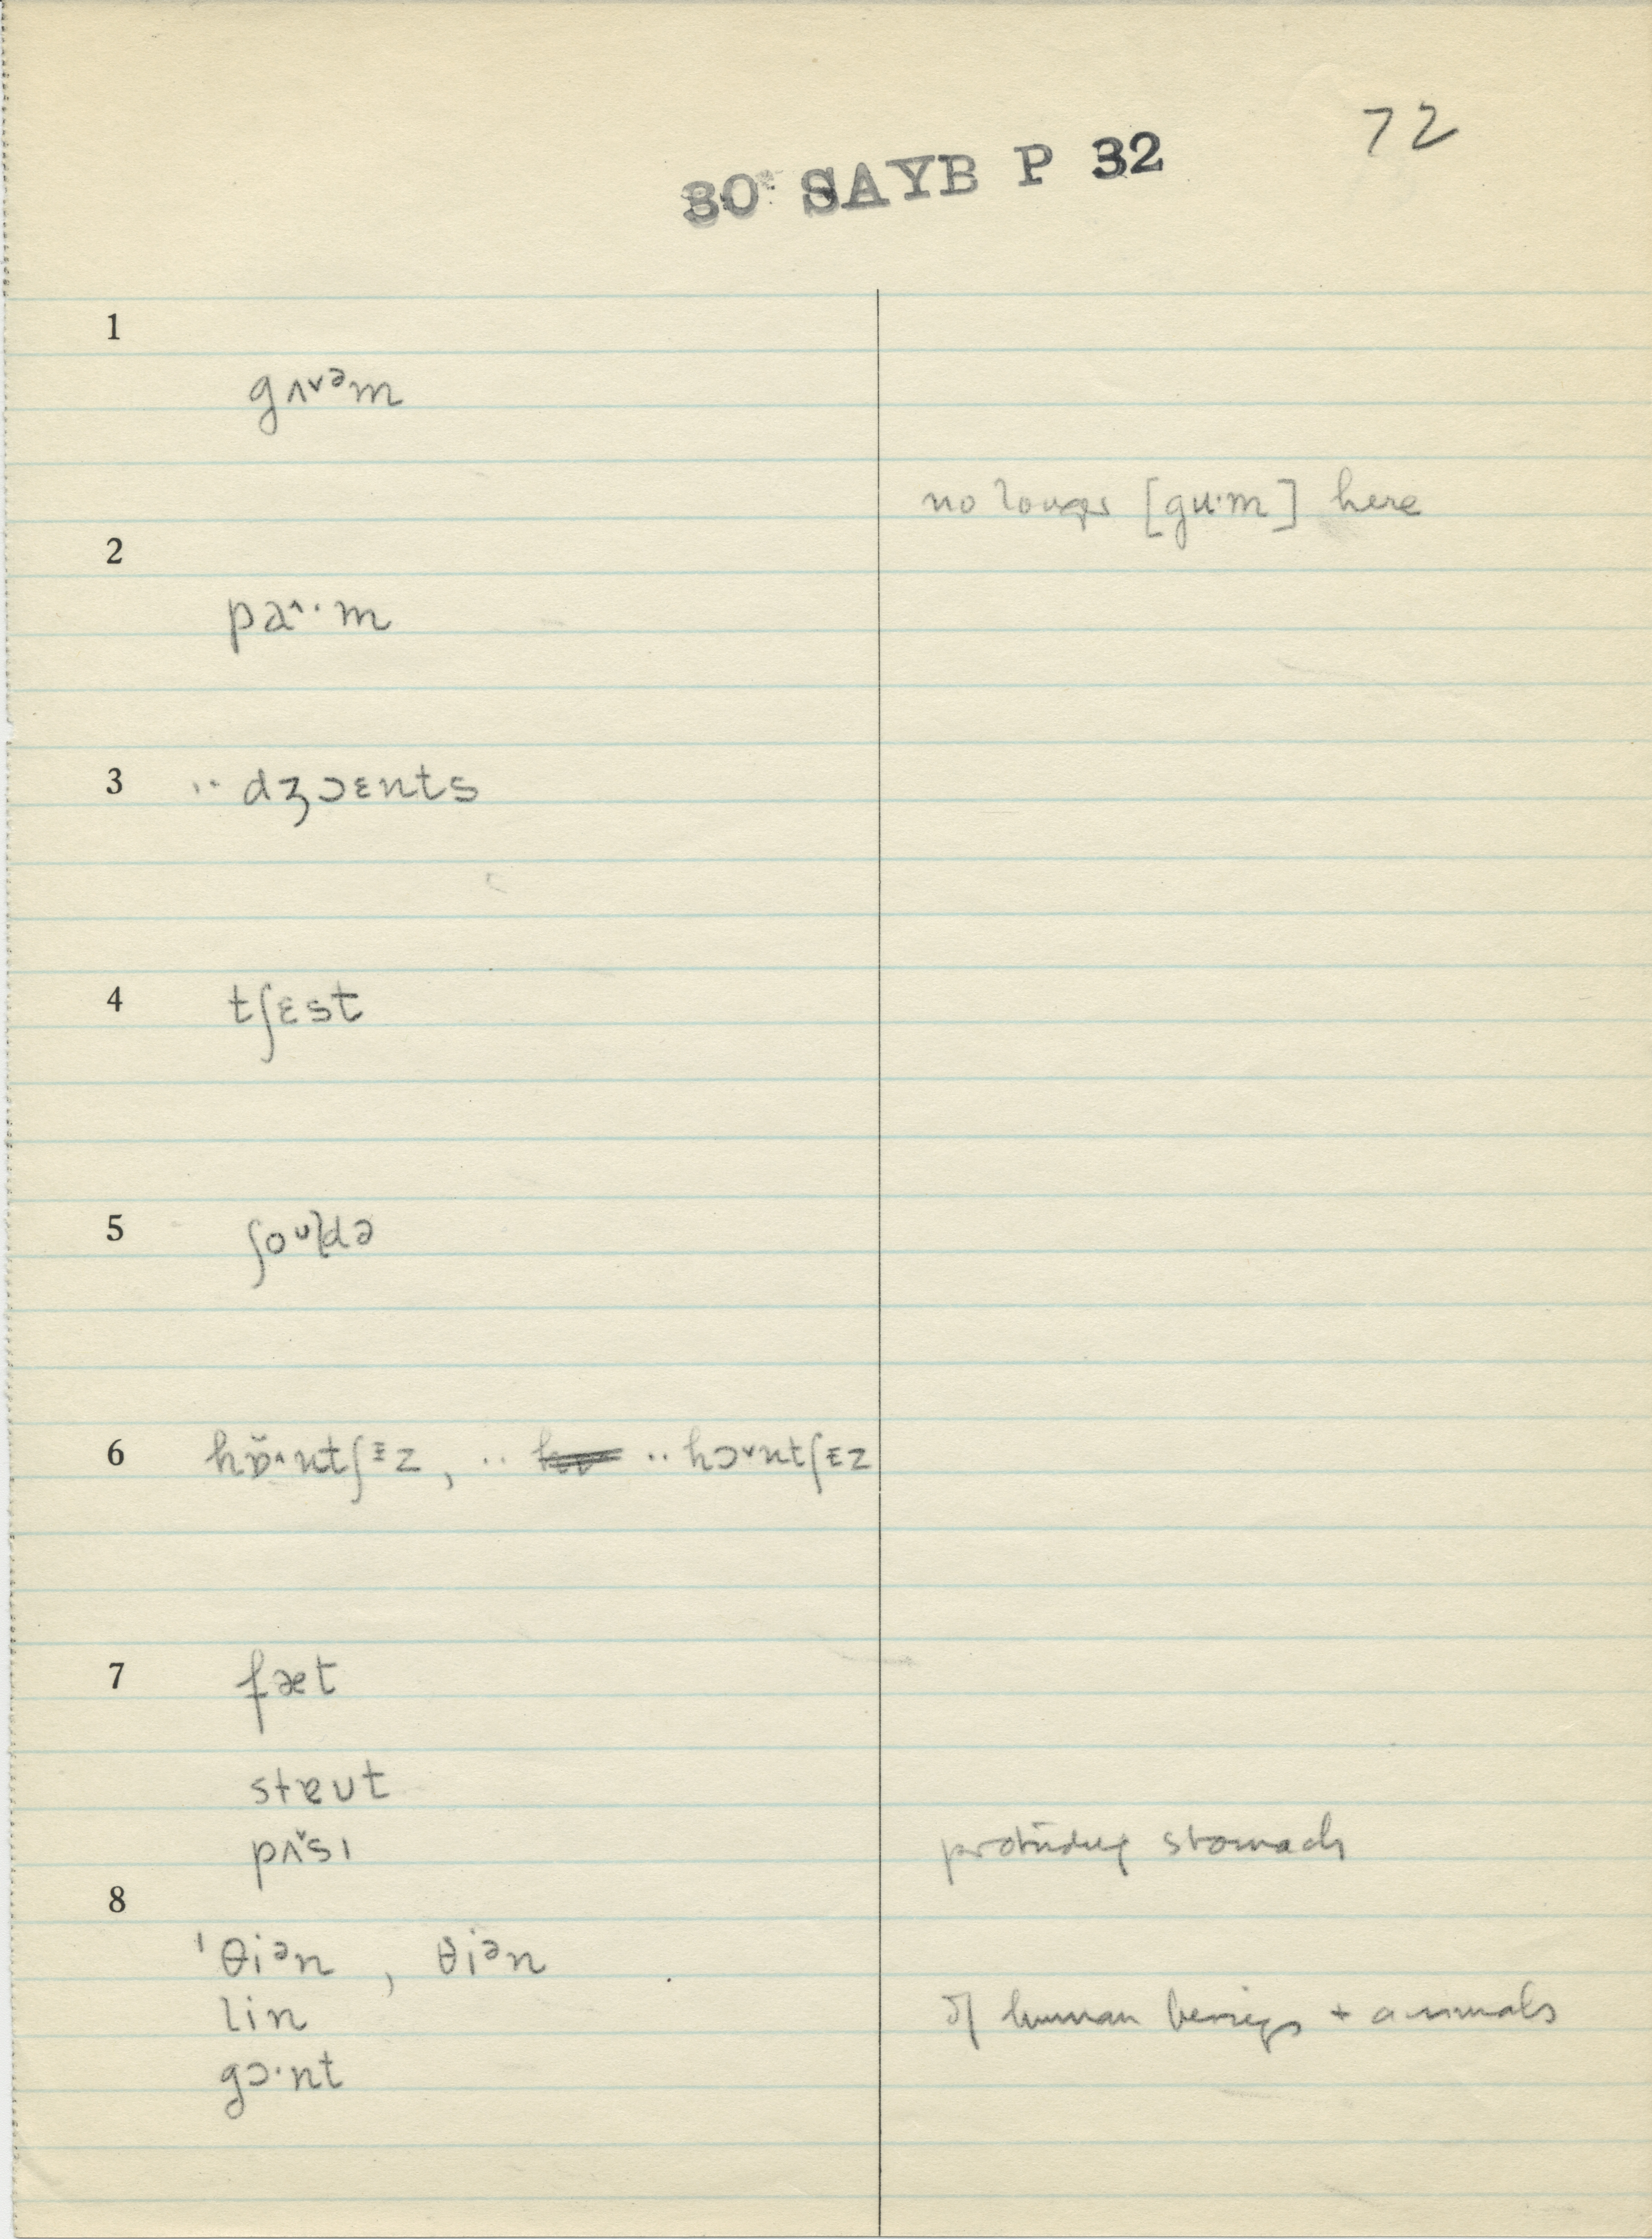 72
30 SAYB P 32
1
gʌ˅ᵊm
no longer [gu·m] here
2
pa^·m
3 ·· dʒɔɛnts
4 tʃɛst
5 ʃoᶷɫdə
6 hɒ̌^·ntʃᵻz, ·· ·· hɔ˅ntʃɪz
7 fæt
stɐut
pʌ̌sɪ protruding stomach
8
ˈθiᵊn , θiᵊn
lin of human beings + animals
gɔ·nt